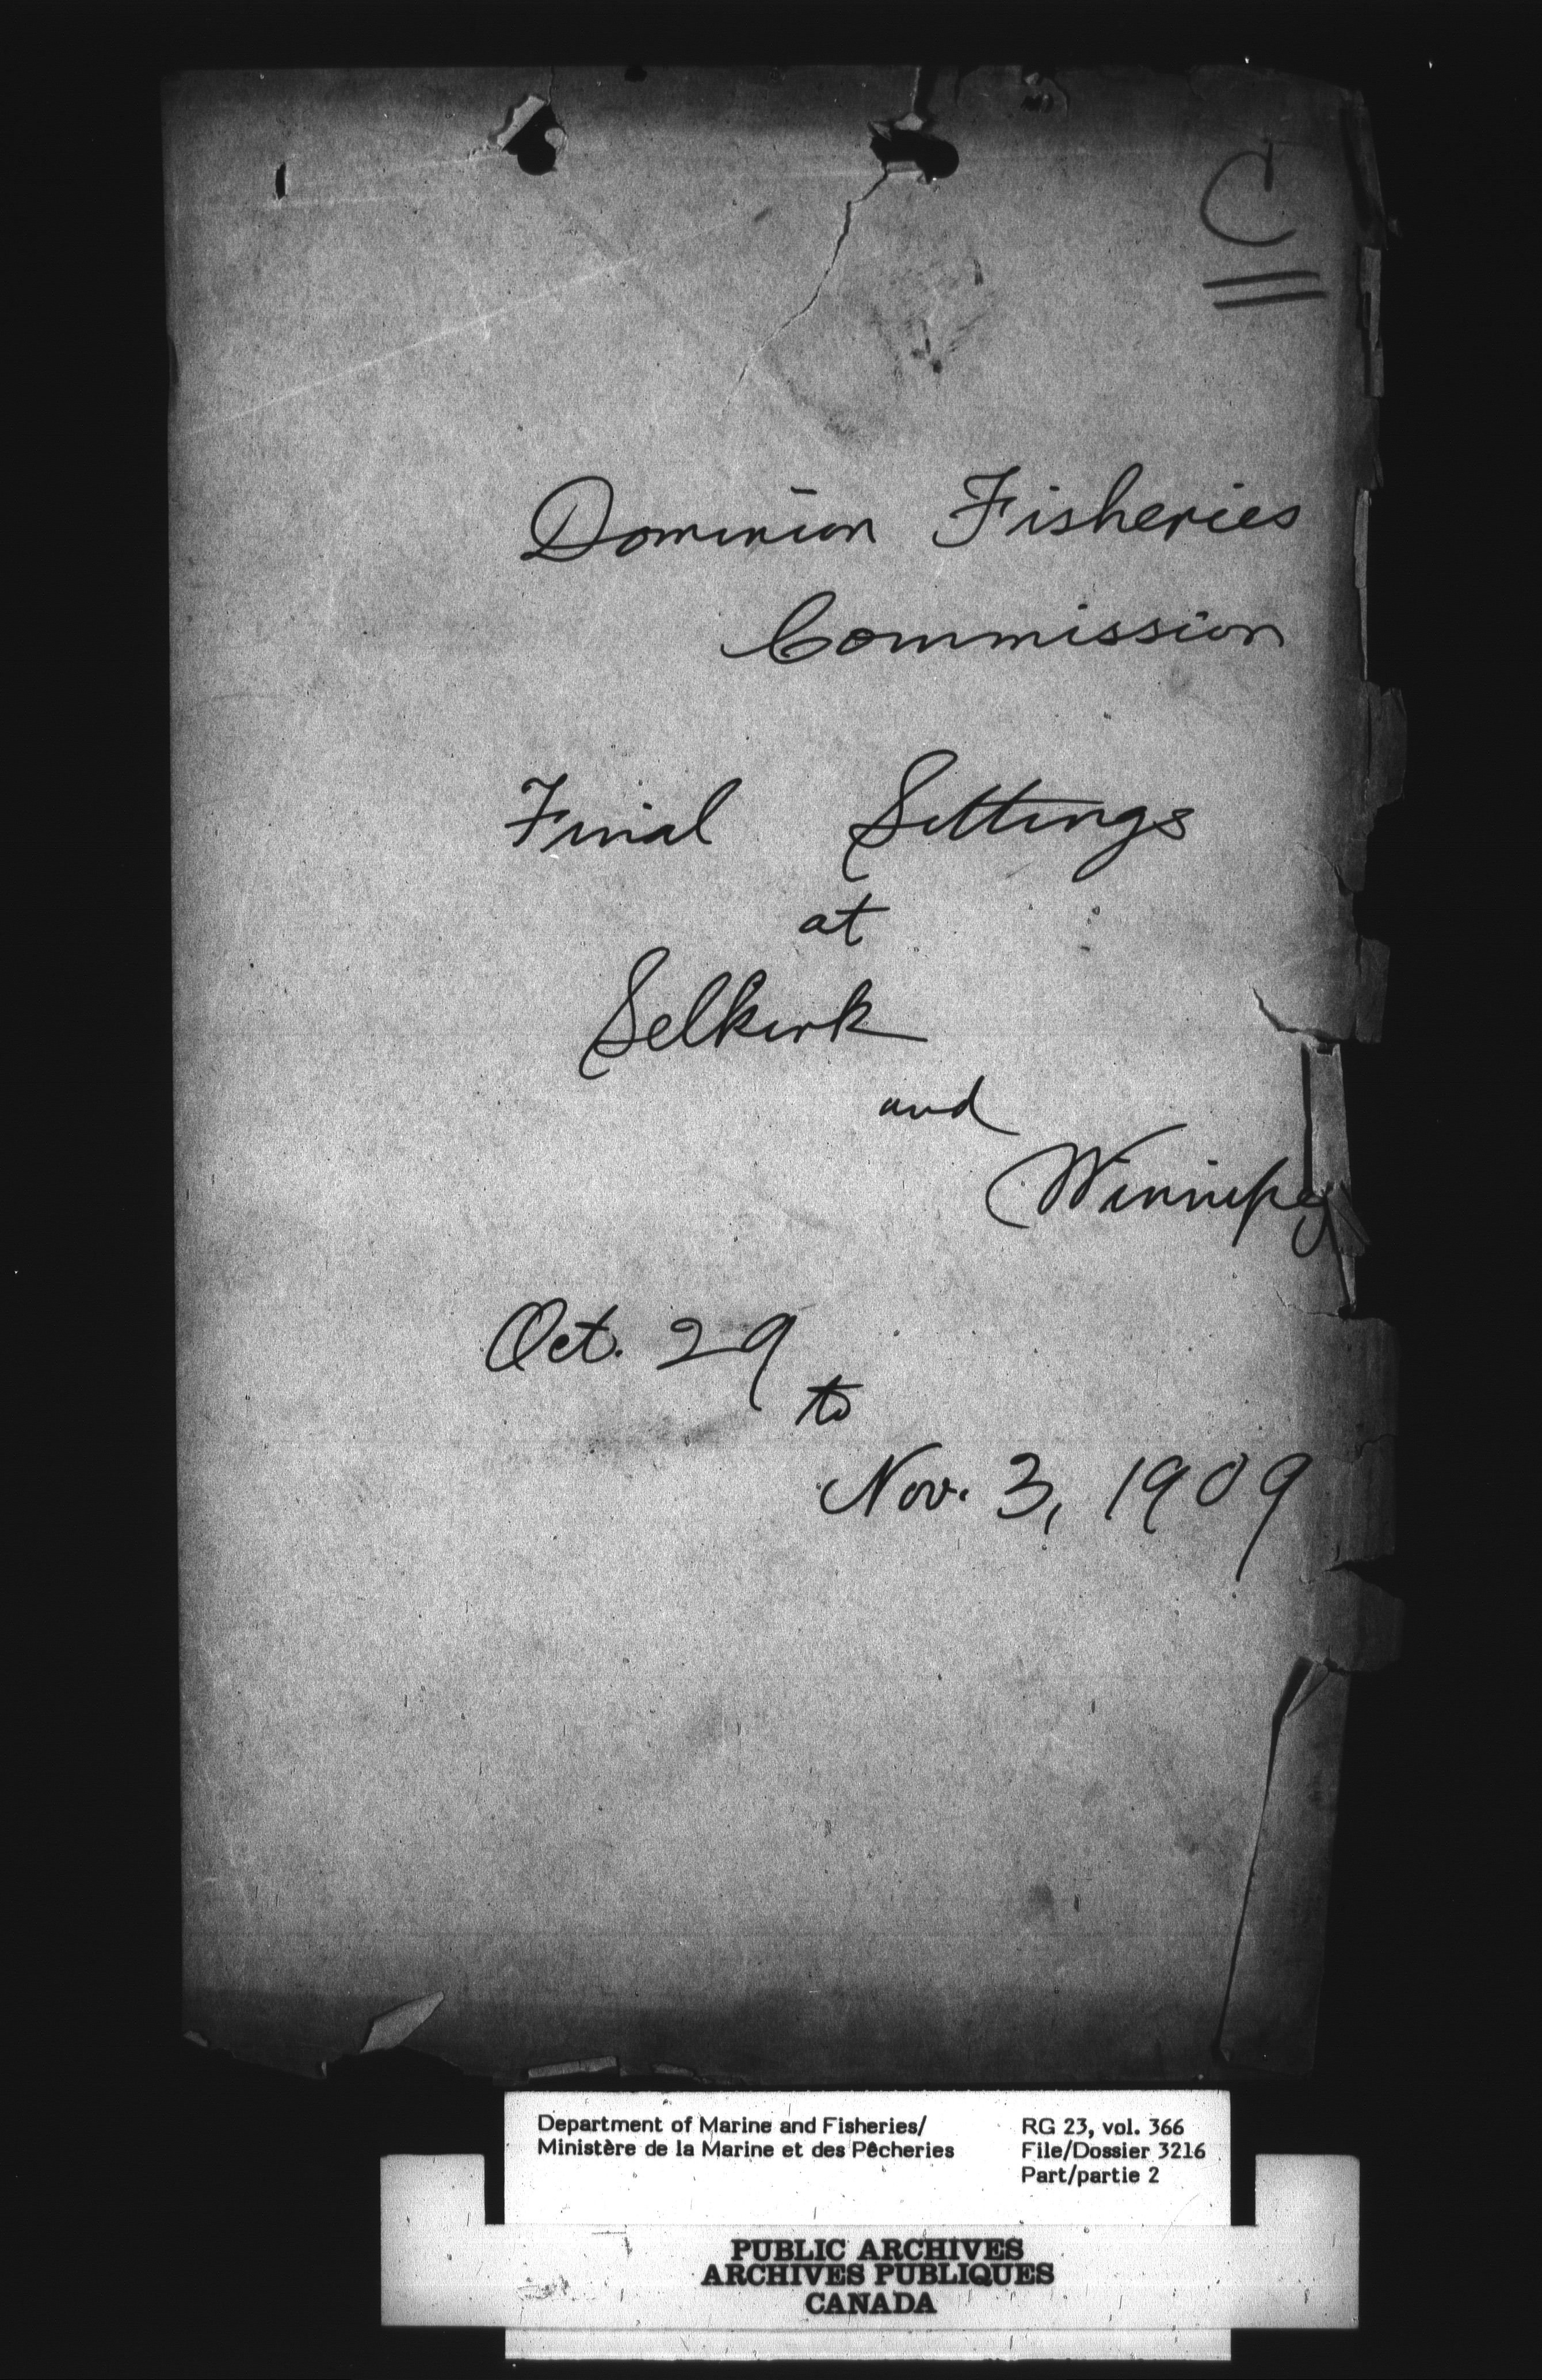 C
Dominion Fisheries
Commission
Final Sittings
at
Selkirk
and
Winnipeg
Oct. 29
to
Nov. 3, 1909
Department of Marine and Fisheries/ RG 23, vol. 366
Ministère de la Marine et des Pêcheries File/Dossier 3216
Part/partie 2
PUBLIC ARCHIVES
ARCHIVES PUBLIQUES
CANADA